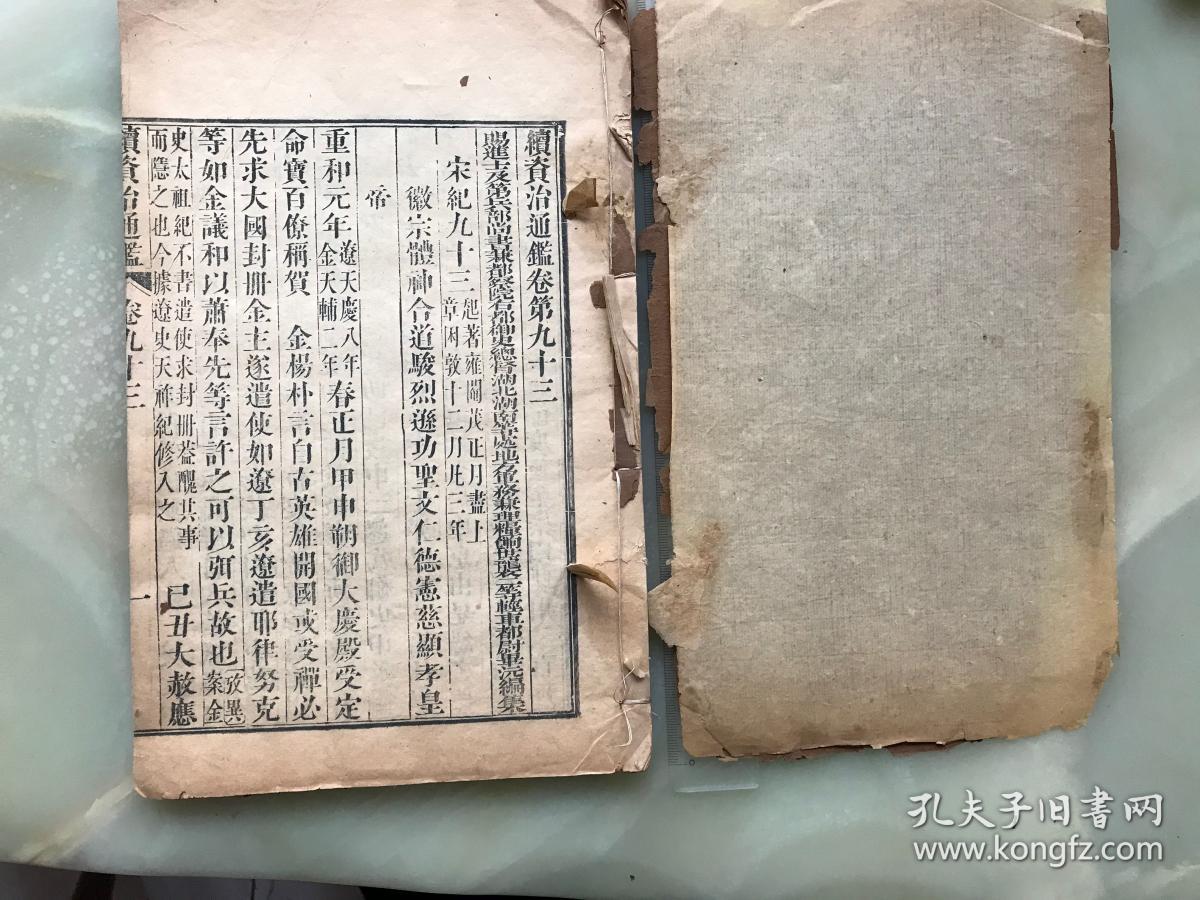 續資治通鑑卷第九十三
賜進士及第兵部尚書兼都察院右都御史總督湖北湖南等處地方軍務兼理糧餉世襲二等輕車都尉畢沅編集
宋紀九十三起著雍閹茂正月盡上章困敦十二月凡三年
徽宗體神合道駿烈遜功聖文仁德憲慈顯孝皇
帝
重和元年遼天慶八年金天輔二年春正月甲申朔御大慶殿受定
命寶百僚稱賀 金楊朴言自古英雄開國或受禪必
先求大國封冊金主遂遣使如遼丁亥遼遣耶律努克
等如金議和以蕭奉先等言許之可以弭兵故也攷異案金
史太祖紀不書遣使求封冊葢醜其事而隱之也今據遼史天祚紀修入之 己丑大赦應
續資治通鑑 卷九十三 一
孔夫子旧书网
www.kongfz.com